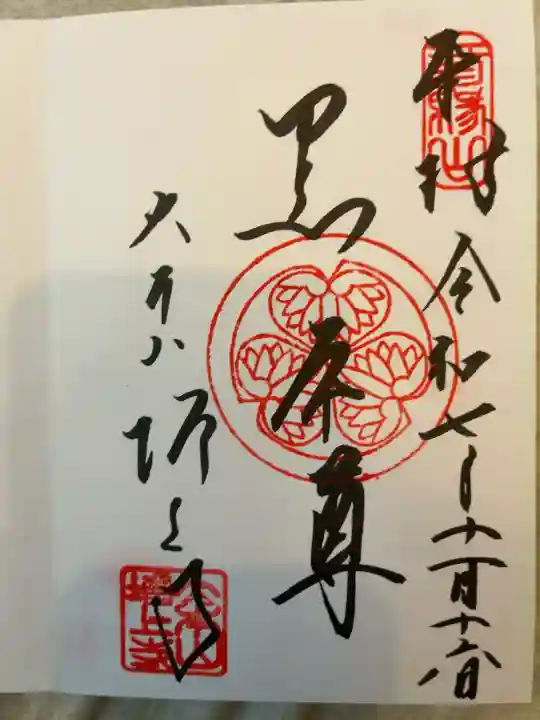 奉拝 令和七年十一月十六日
黒本尊
大本山増上寺